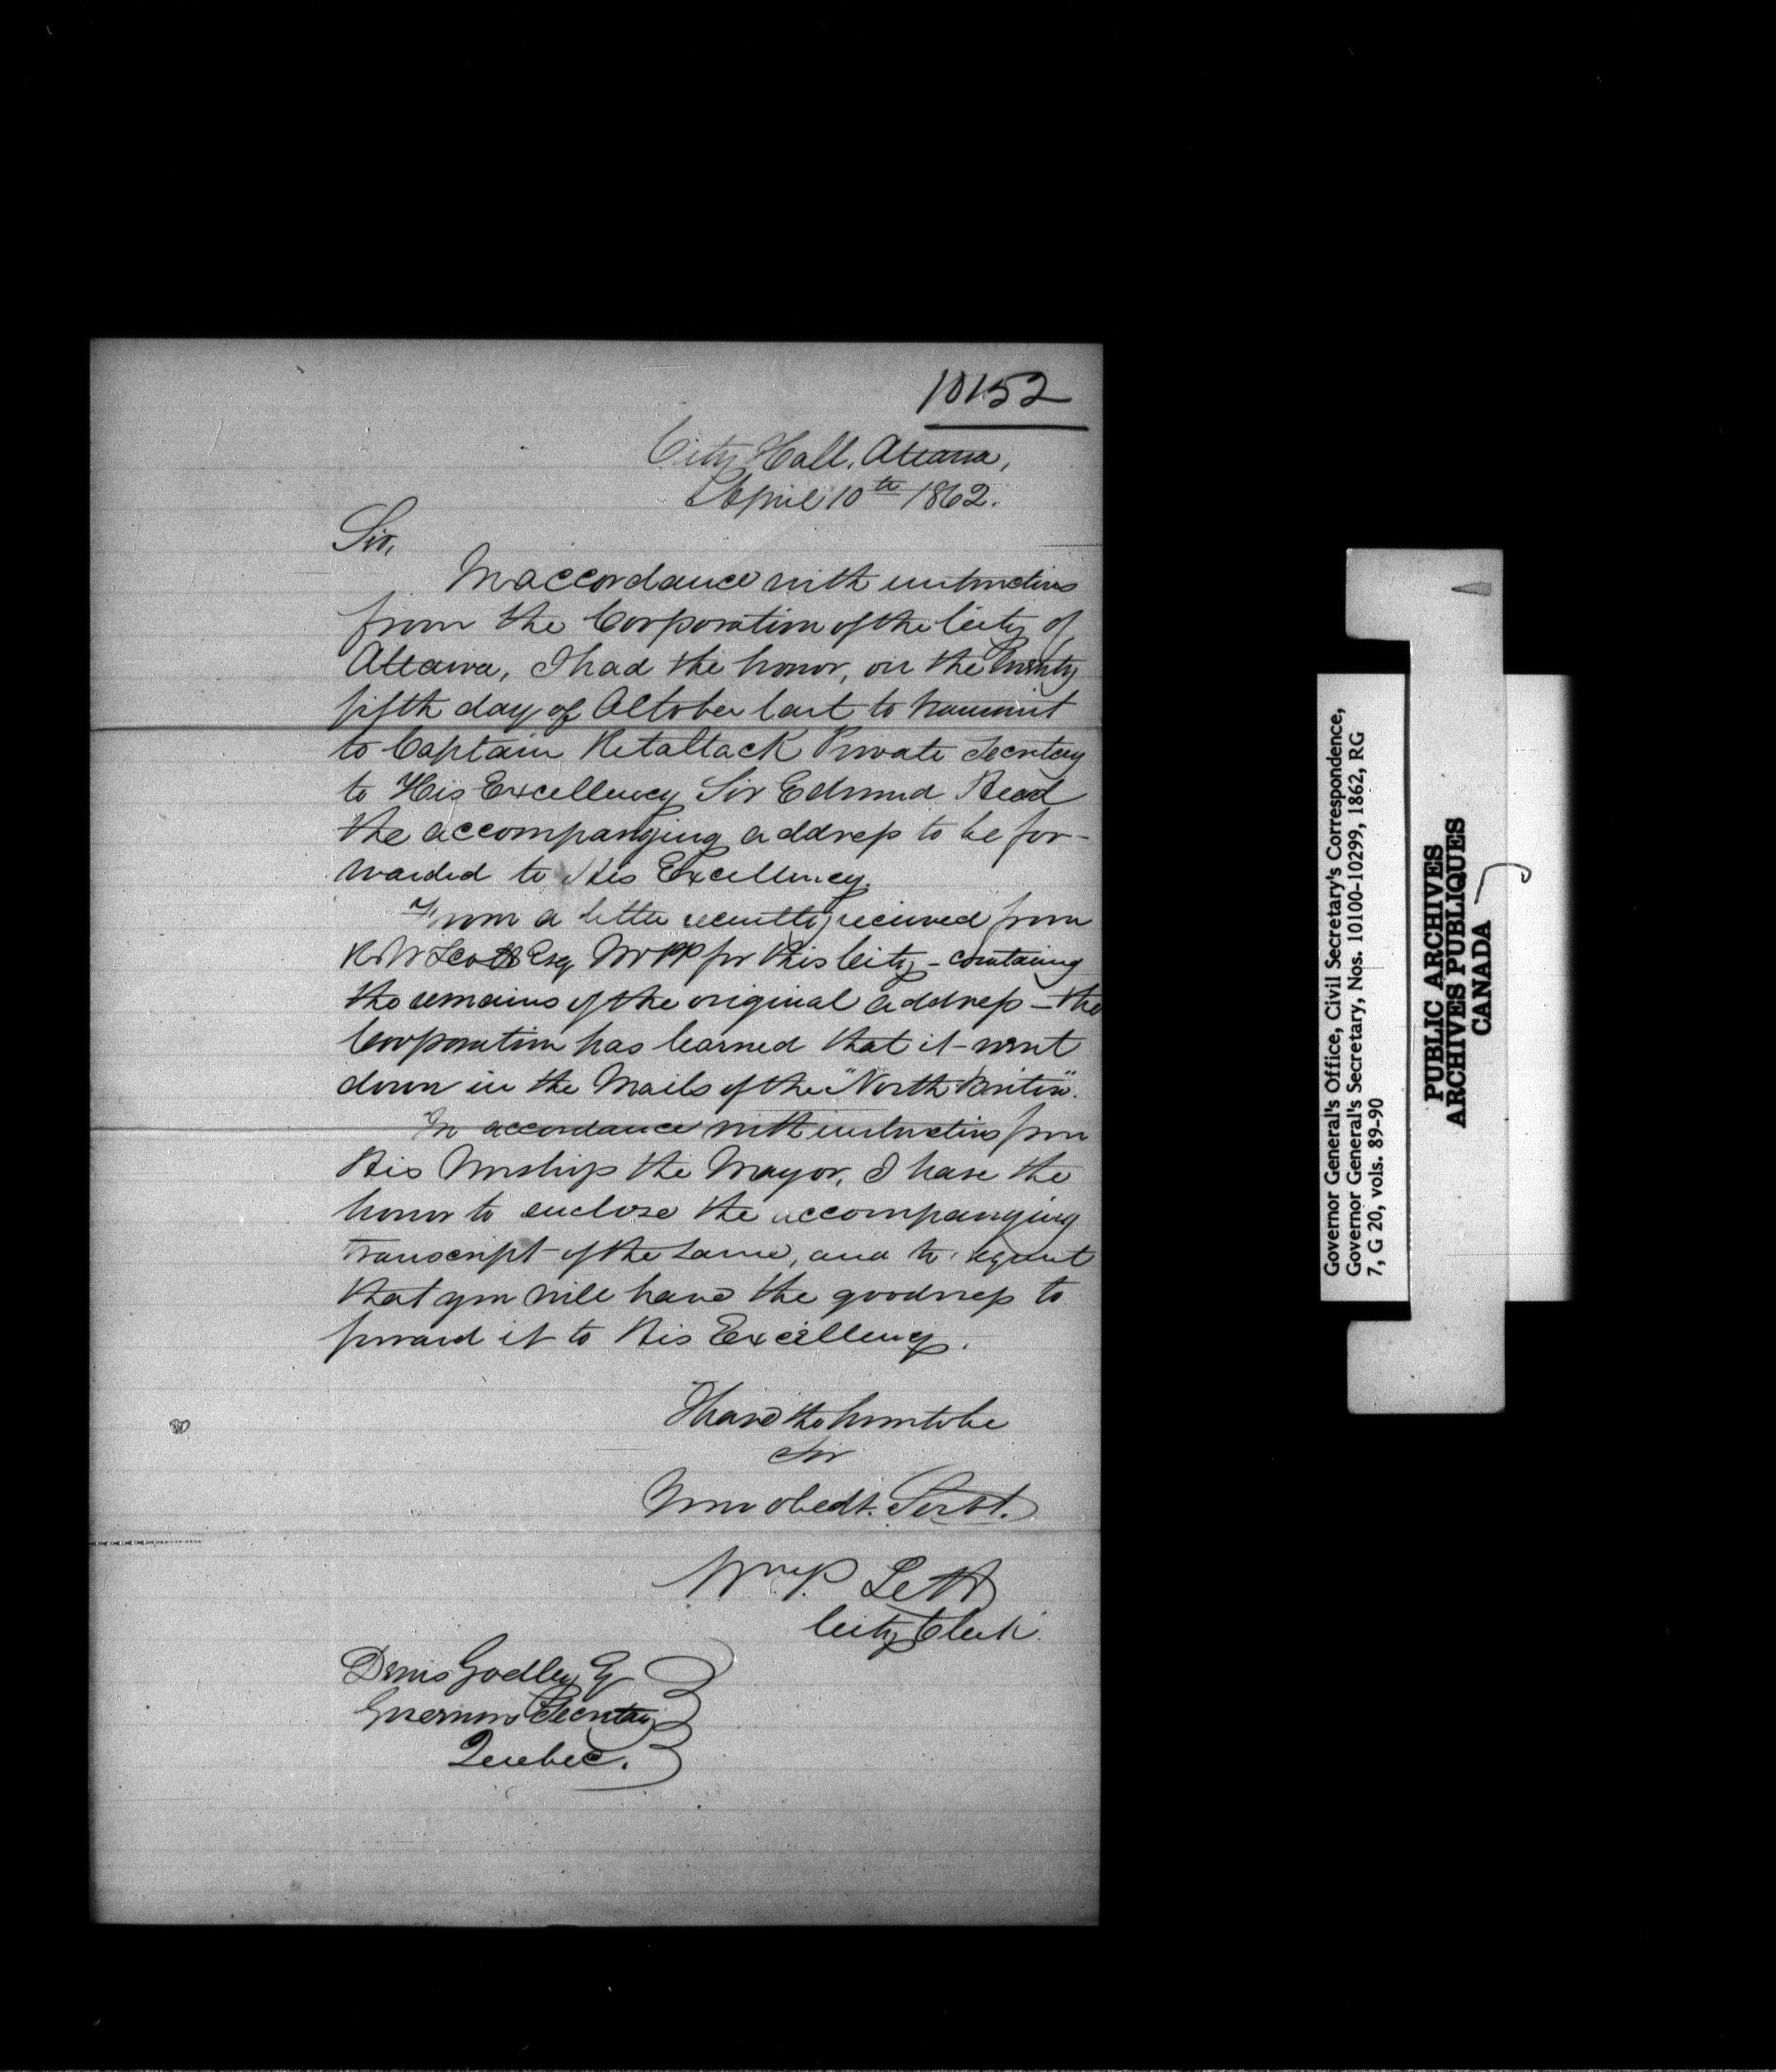 10152
City Hall, Ottawa,
April 10th 1862.
Sir,
In accordance with instructions
from the Corporation of the City of
Ottawa, I had the honor, on the twenty
fifth day of October last to transmit
to Captain Retallack Private Secretary
to His Excellency Sir Edmund Head
the accompanying address to be for-
warded to His Excellency.
From a letter recently received from
R W Scott Esq MPP for this City - containing
the remains of the original address - the
Corporation has learned that it went
down in the Mails of the "North Briton".
In accordance with instructions from
His Worship the Mayor, I have the
honor to enclose the accompanying
transcript of the same, and to request
that you will have the goodness to
forward it to His Excellency.
I have the honor to be
Sir
Your obedt. Servt.
Wm P. Lett
City Clerk.
Denis Godley Esq
Governors Secretary
Quebec.
Governor General's Office, Civil Secretary's Correspondence,
Governor General's Secretary, Nos. 10100-10299, 1862, RG
7, G 20, vols. 89-90
PUBLIC ARCHIVES
ARCHIVES PUBLIQUES
CANADA